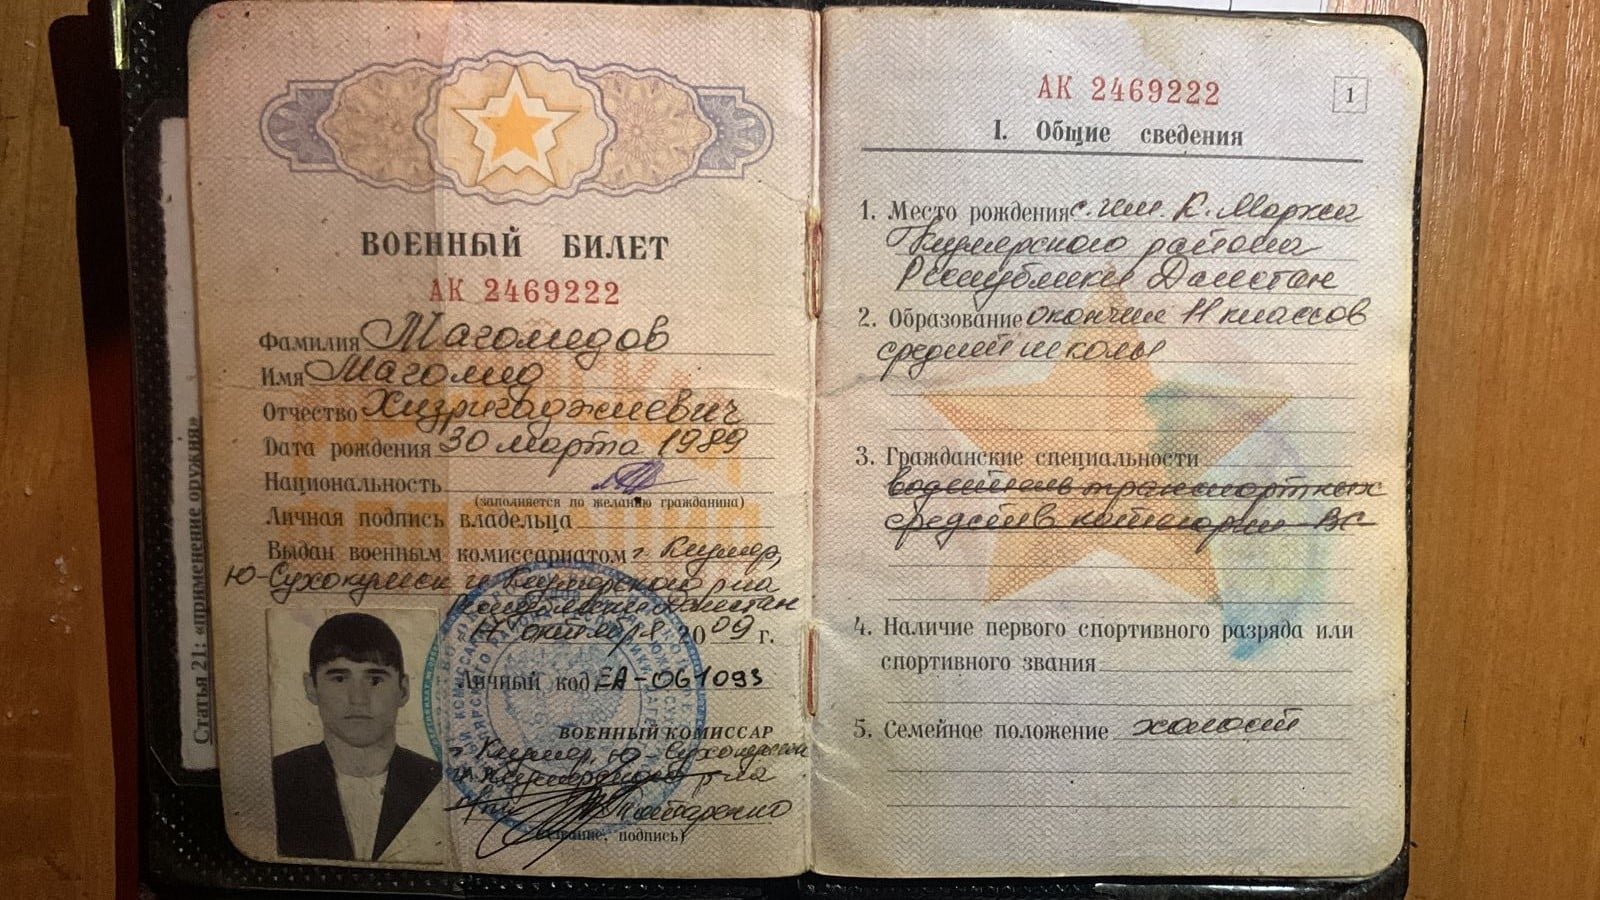 Статья 21: «применение оружия»
ВОЕННЫЙ БИЛЕТ
АК 2469222
Фамилия Магомедов
Имя Магомед
Отчество Хизригаджиевич
Дата рождения 30 марта 1989
Национальность
(заполняется по желанию гражданина)
Личная подпись владельца
Выдан военным комиссариатом г. Кизляр,
Ю-Сухокумск и Кизлярского р-на
Республики Дагестан
17 октября 2009 г.
Личный код ЕА-061093
ВОЕННЫЙ КОМИССАР
г. Кизляр, Ю-Сухокумск
и Кизлярского р-на
(звание, подпись)
АК 2469222
1
I. Общие сведения
1. Место рождения с. им. К. Маркса
Кизлярского района
Республики Дагестан
2. Образование окончил 11 классов
средней школы
3. Гражданские специальности
водитель транспортных
средств категории ВС
4. Наличие первого спортивного разряда или
спортивного звания
5. Семейное положение холост